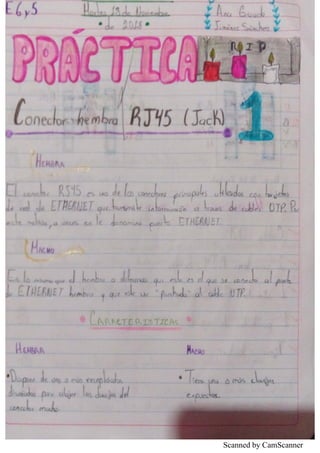 E 6 y 5
Martes 13 de Noviembre
• de 2018 •
Ana
Jiménez Sánchez
PRÁCTICA
R I P
1
Conector hembra RJ45 (Jack)
HEMBRA
El conector RJ45 es uno de los conectores principales utilizados con tarjetas
de red de ETHERNET que transmite información a través de cables UTP. Por
este motivo, a veces se le denomina puerto ETHERNET.
MACHO
Es lo mismo que el hembra a diferencia que este es el que se conecta al puerto
de ETHERNET hembra y que este va "ponchado" al cable UTP.
• CARACTERISTICAS •
HEMBRA
MACHO
• Dispone de una o más receptáculos
diseñados para alojar las clavijas del
conector macho.
• Tiene una o más clavijas
expuestas.
Scanned by CamScanner